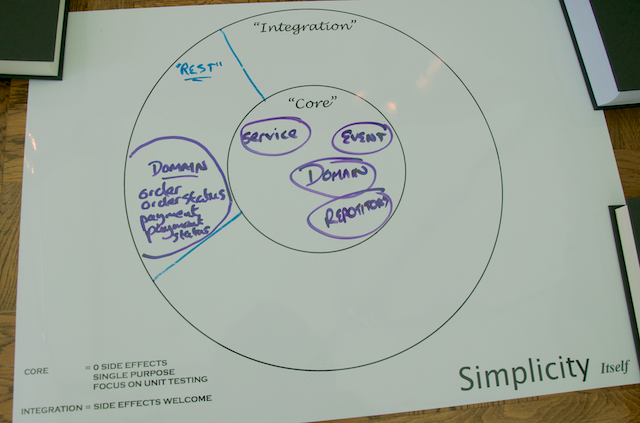 "Integration"
"REST"
"Core"
Service
EVENT
DOMAIN
REPOSITORY
DOMAIN
order
order status
payment
payment
status
CORE = 0 SIDE EFFECTS
SINGLE PURPOSE
FOCUS ON UNIT TESTING
INTEGRATION = SIDE EFFECTS WELCOME
Simplicity Itself